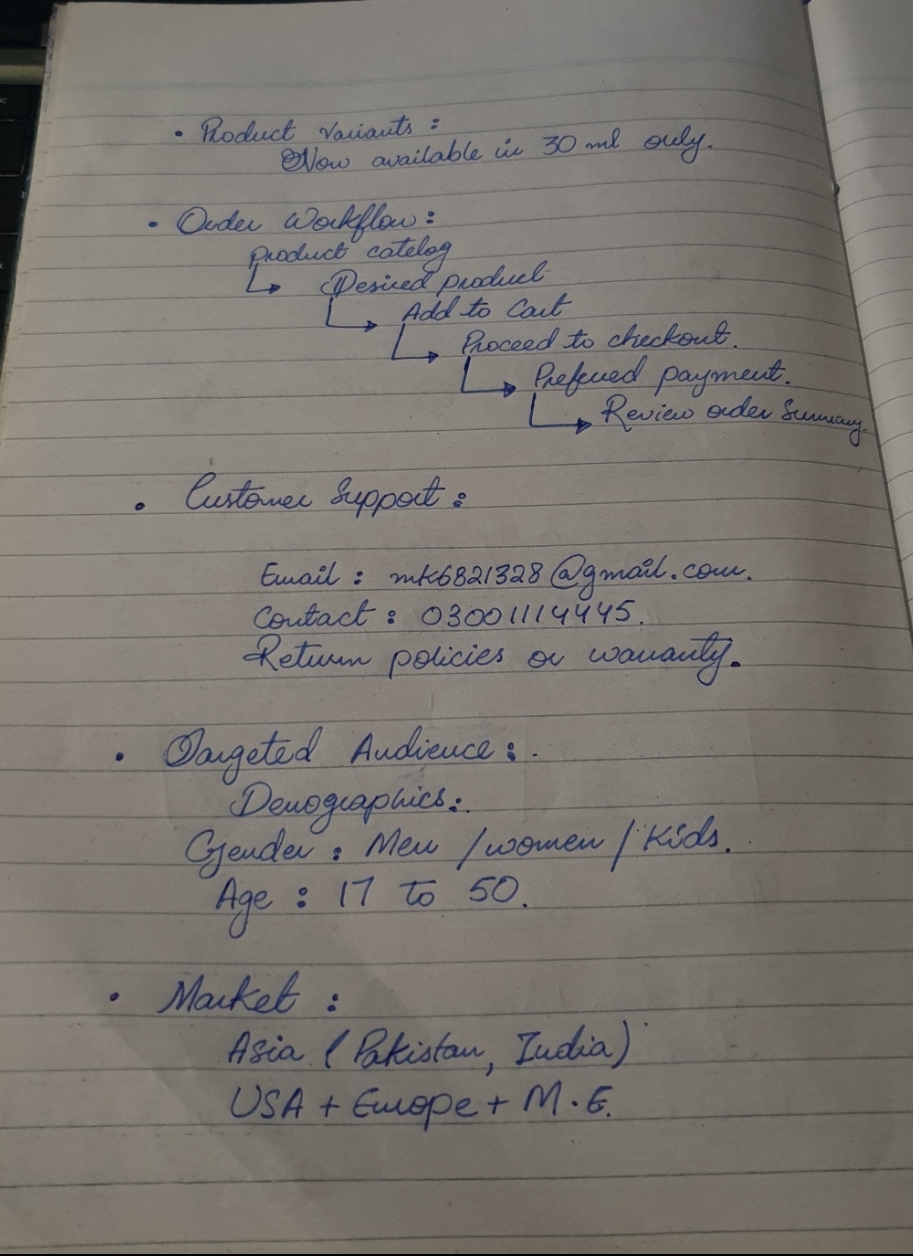 • Product Variants :
Now available in 30 ml only.
• Order Workflow :
Product catelog
↳ Desired product
↳ Add to Cart
↳ Proceed to checkout.
↳ Preferred payment.
↳ Review order Summary.
• Customer Support :
Email : mk6821328@gmail.com.
Contact : 03001114445.
Return policies or warranty.
• Targeted Audience :
Demographics :
Gender : Men / women / Kids.
Age : 17 to 50.
• Market :
Asia (Pakistan, India)
USA + Europe + M.E.